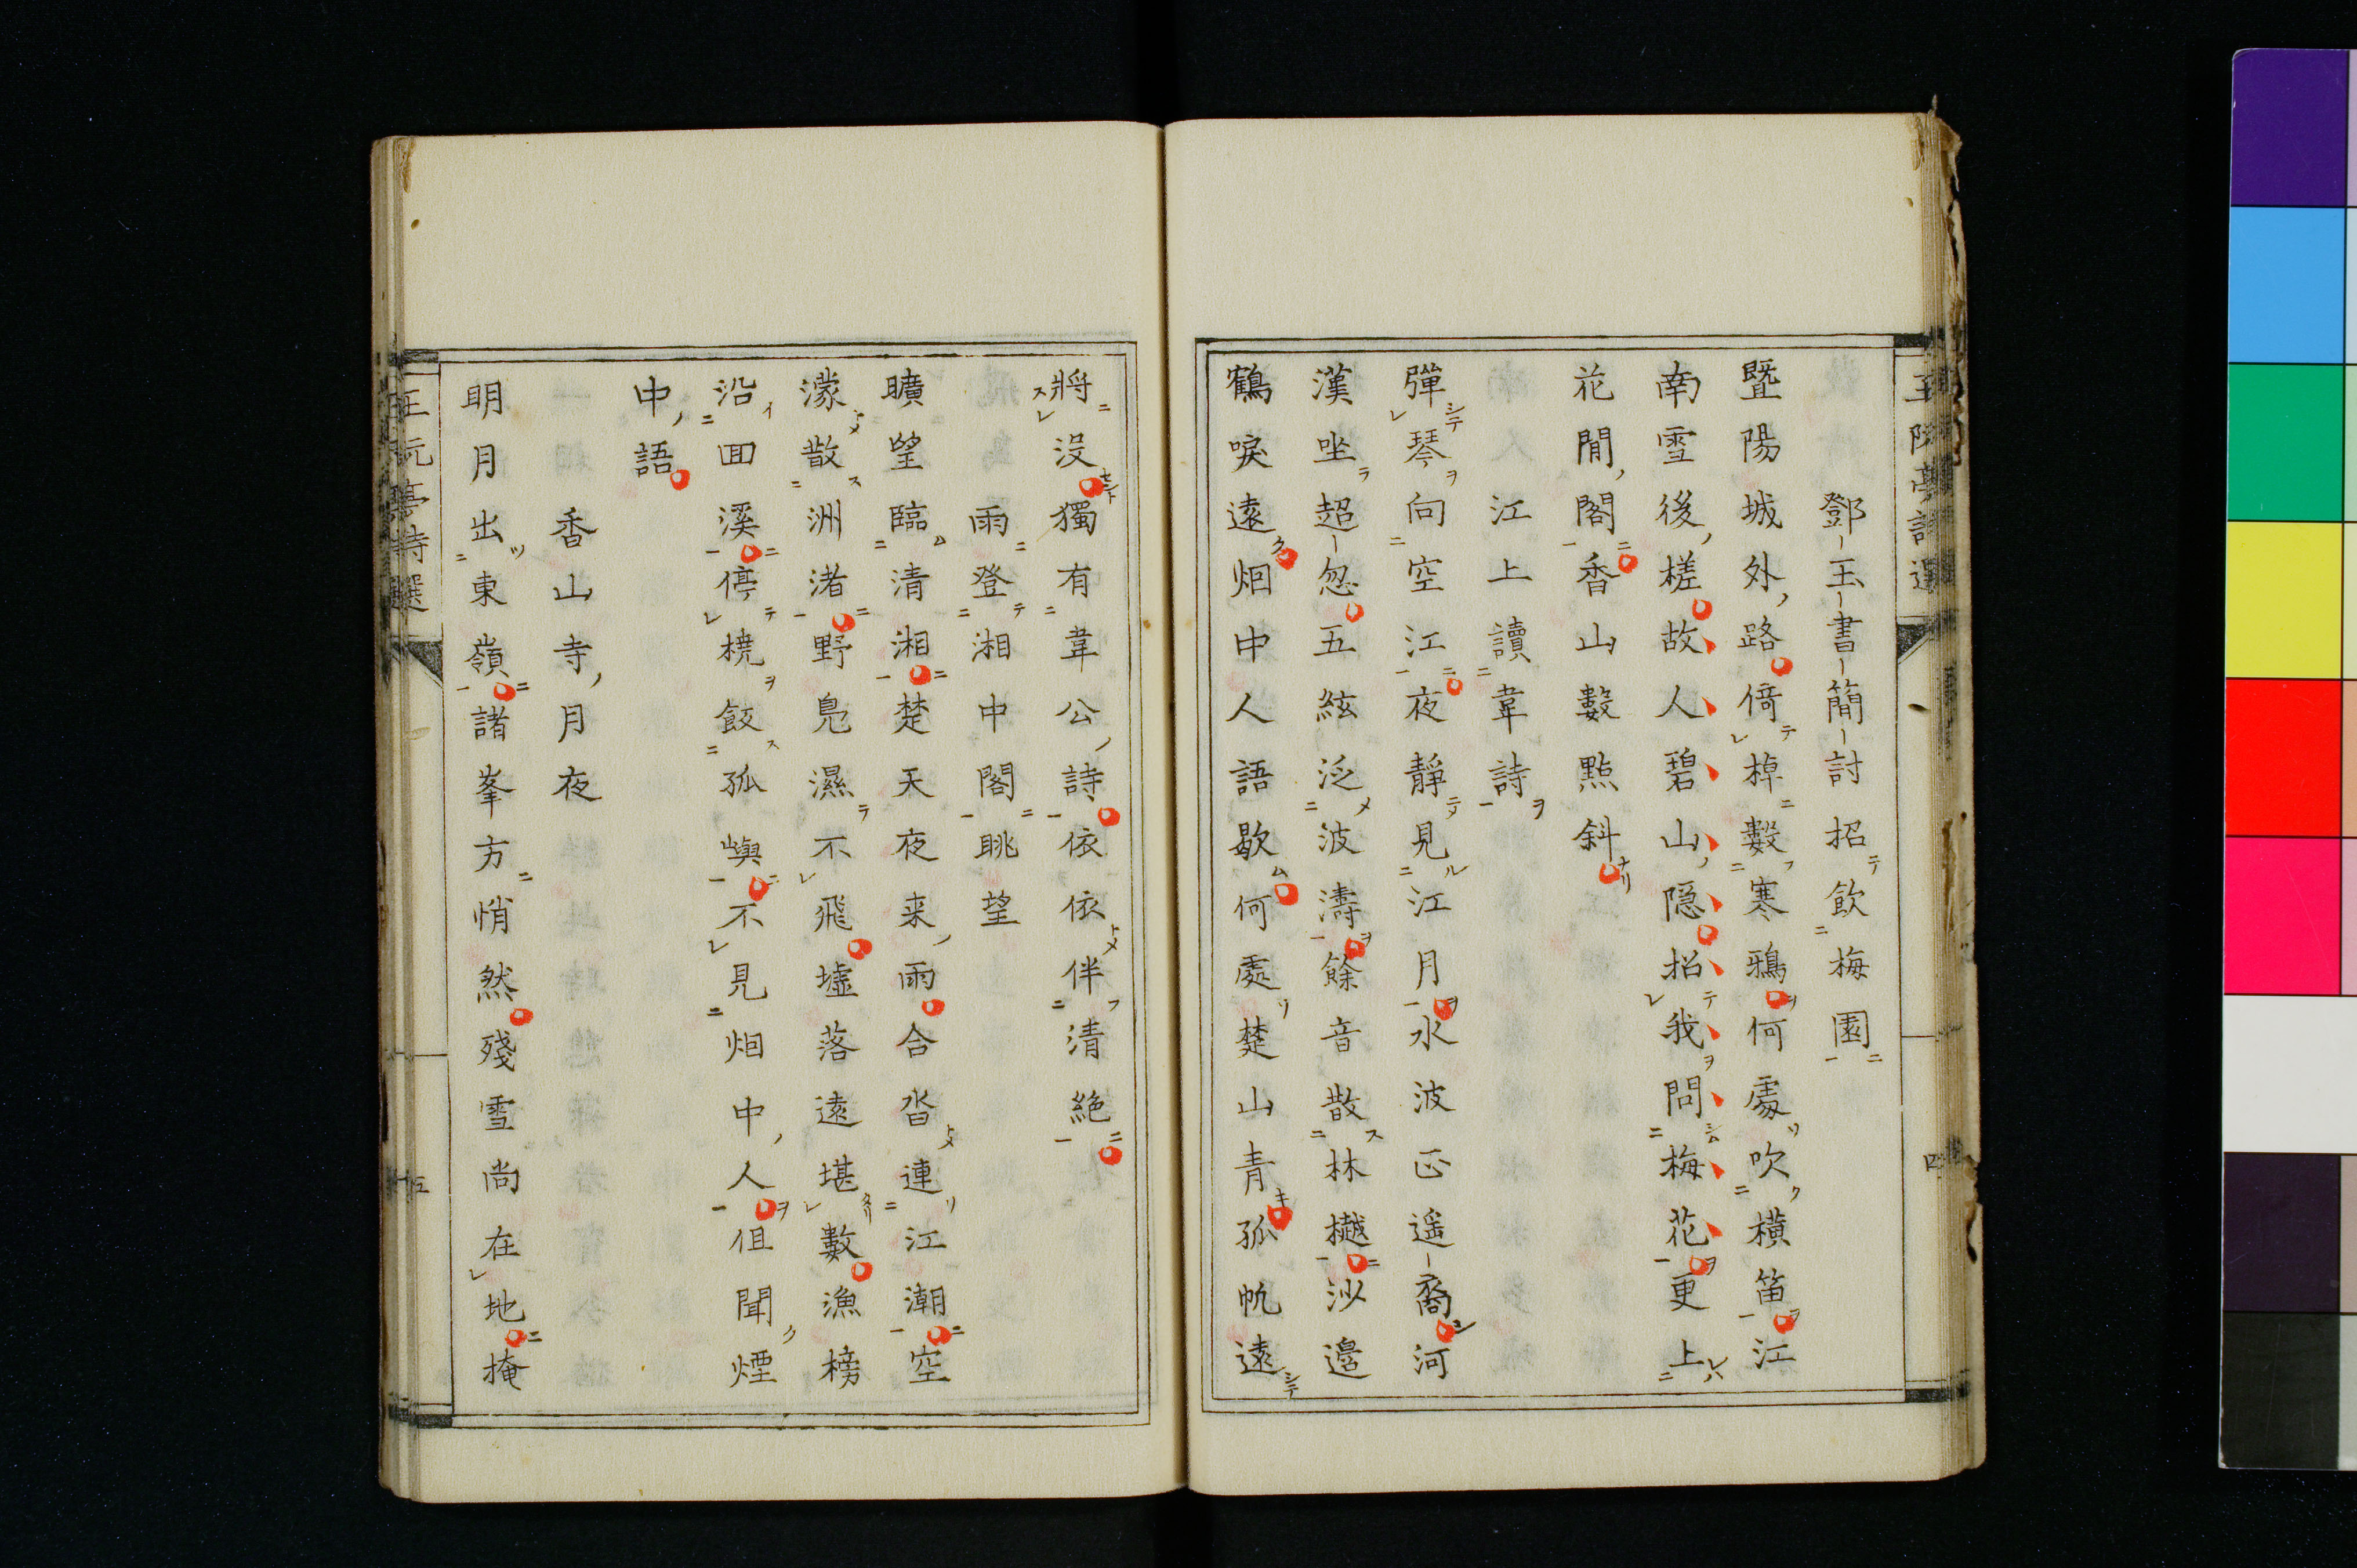 鄧玉書簡討招飲梅園
暨陽城外路倚棹數寒鴉何處吹橫笛江
南雪後槎故人碧山隱招我問梅花更上
花間閣香山數點斜
江上讀韋詩
彈琴向空江夜靜見江月水波正遥裔河
漢坐超忽五絃泛波濤餘音散林樾沙邊
鶴唳遠烟中人語歇何處楚山青孤帆遠
將沒獨有韋公詩依依伴清絕
雨登湘中閣眺望
曠望臨清湘楚天夜来雨合沓連江潮空
濛散洲渚野鳧濕不飛墟落遠堪數漁榜
沿回溪停橈飯孤嶼不見烟中人但聞煙
中語
香山寺月夜
明月出東嶺諸峯方悄然殘雪尚在地掩
王阮亭詩選
五